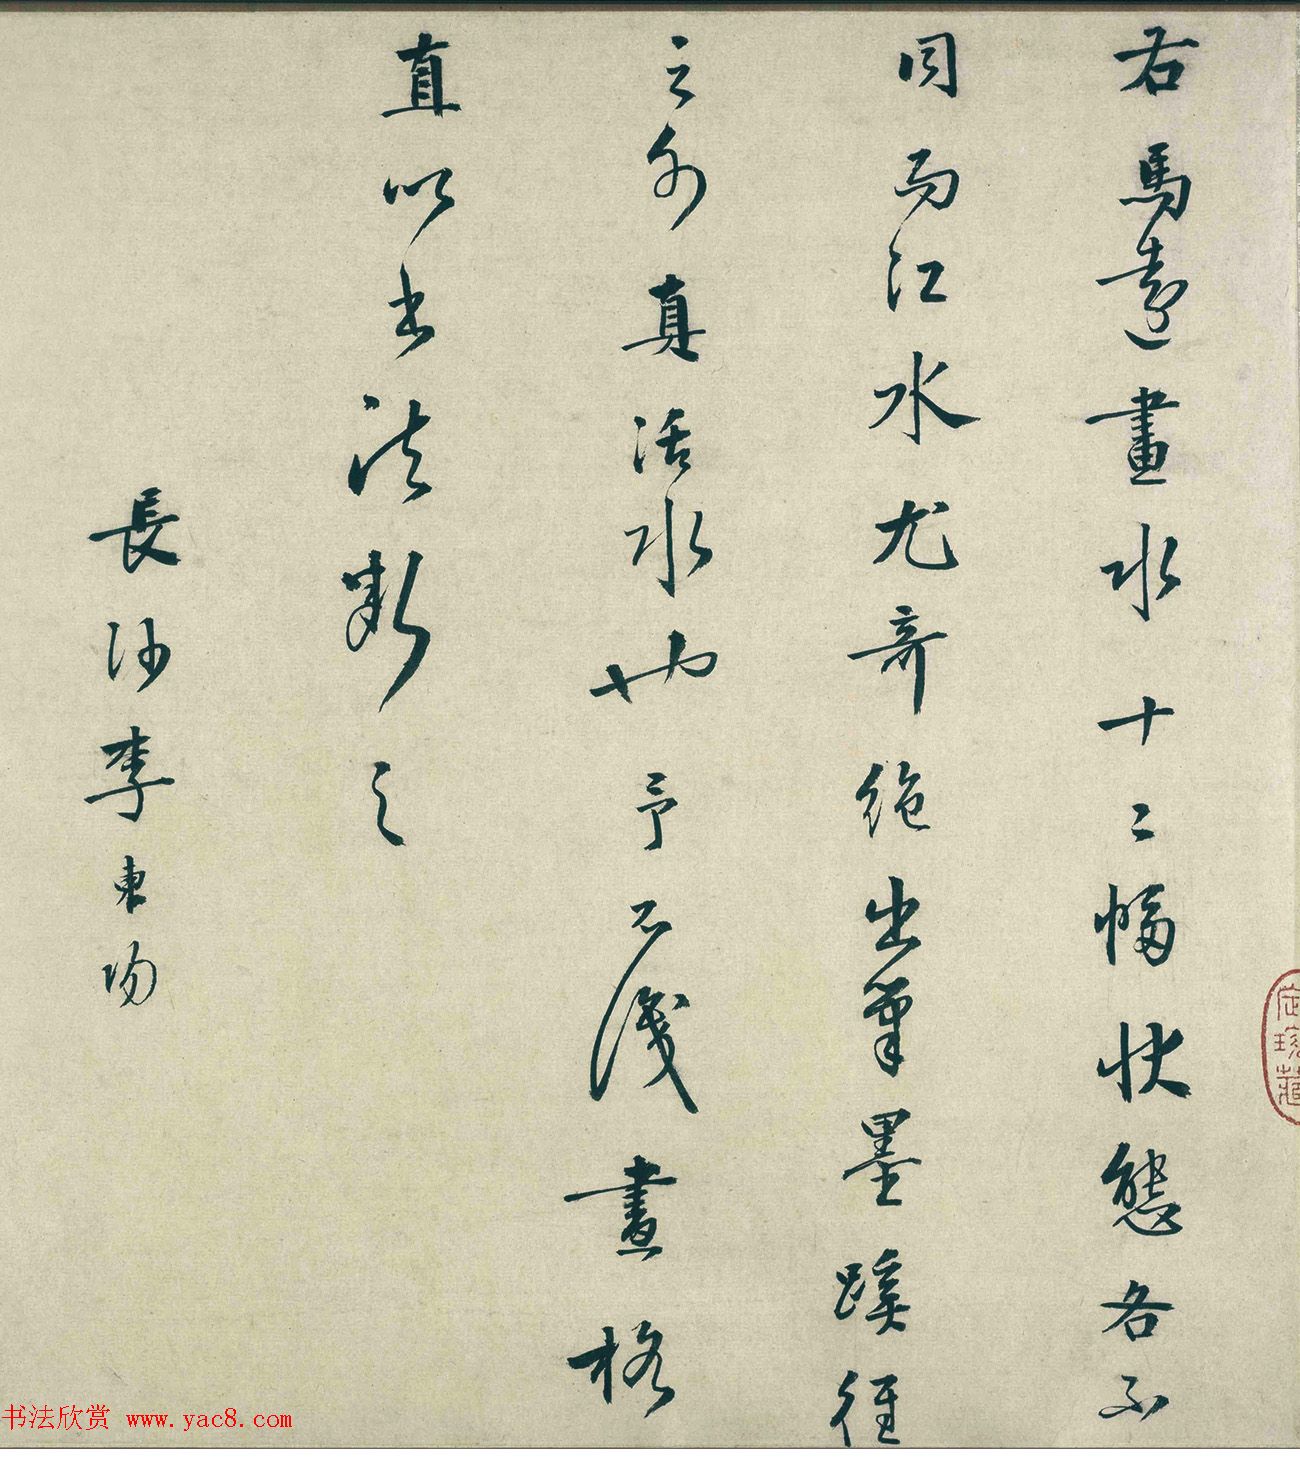 右馬遠畫水十二幅狀態各不
同而江水尤奇絶出筆墨蹊徑
之外真活水也予不識畫格
直以書法斷之
長沙李東陽
定珍藏
书法欣赏 www.yac8.com